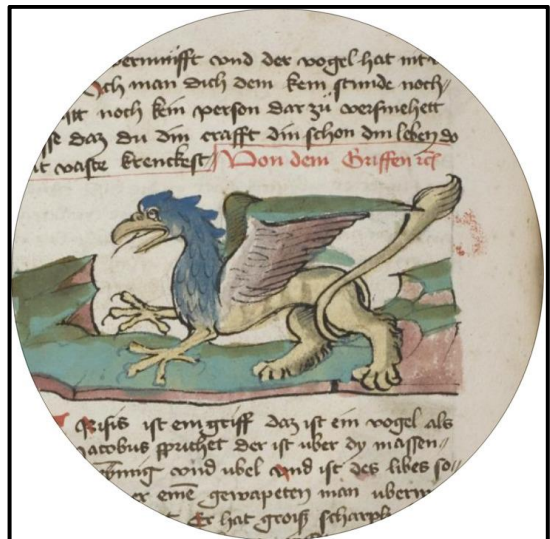 vernunfft vnd der vogel hat nit
Och man dich dem kein stunde noch
noch kein person dar zü versmehett
daz du din crafft din schon din leben do
vaste krenckest Von dem Griffen ich
Grifis ist ein griff daz ist ein vogel als
Jacobus sprichet der ist uber dy massen
vnd ubel vnd ist des libes so
er eine gewapeten man uberw
Er hat groiß scharpfe